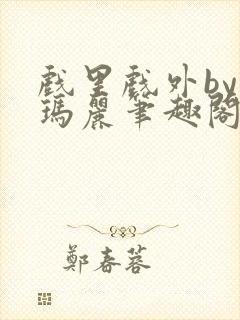 戲里戲外by
瑪麗筆趣閣
鄭春蓉